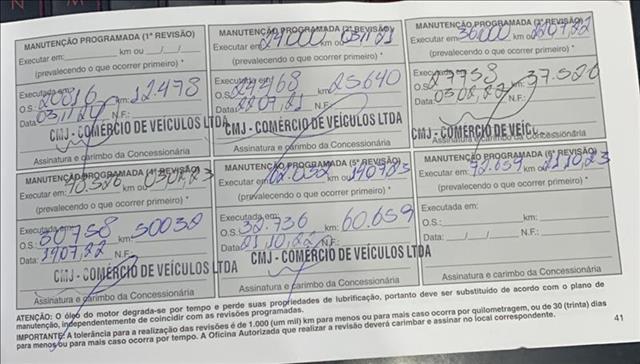 MANUTENÇÃO PROGRAMADA (1ª REVISÃO)
Executar em: km ou __/__/__
(prevalecendo o que ocorrer primeiro) *
Executada em:
O.S.: 20816 km: 12.478
Data: 03,11,20 N.F.:
CMJ - COMÉRCIO DE VEÍCULOS LTDA
Assinatura e carimbo da Concessionária
MANUTENÇÃO PROGRAMADA (2ª REVISÃO)
Executar em: km ou
(prevalecendo o que ocorrer primeiro) *
Executada em:
O.S.: 24468 km: 25640
Data: 2207,21 N.F.:
CMJ - COMÉRCIO DE VEÍCULOS LTDA
Assinatura e carimbo da Concessionária
MANUTENÇÃO PROGRAMADA (3ª REVISÃO)
Executar em: 36000 km ou
(prevalecendo o que ocorrer primeiro) *
Executada em:
O.S.: 27758 km: 37.526
Data: N.F.:
CMJ - COMÉRCIO DE VEÍC
Assinatura e carimbo da Concessionária
MANUTENÇÃO PROGRAMADA (4ª REVISÃO)
Executar em: km ou
(prevalecendo o que ocorrer primeiro) *
Executada em:
O.S.: 30758 km: 50032
Data: 1907,22 N.F.:
CMJ - COMÉRCIO DE VEÍCULOS LTDA
Assinatura e carimbo da Concessionária
MANUTENÇÃO PROGRAMADA (5ª REVISÃO)
Executar em: 62.032 km ou 190723
(prevalecendo o que ocorrer primeiro) *
Executada em:
O.S.: 32.736 km: 60.659
Data: 21,10,22 N.F.:
CMJ - COMÉRCIO DE VEÍCULOS LTDA
Assinatura e carimbo da Concessionária
MANUTENÇÃO PROGRAMADA (6ª REVISÃO)
Executar em: 72.659 km ou 211023
(prevalecendo o que ocorrer primeiro) *
Executada em:
O.S.: km:
Data: __/__/__ N.F.:
Assinatura e carimbo da Concessionária
ATENÇÃO: O óleo do motor degrada-se por tempo e perde suas propriedades de lubrificação, portanto deve ser substituído de acordo com o plano de
manutenção, independentemente de coincidir com as revisões programadas.
IMPORTANTE: A tolerância para a realização das revisões é de 1.000 (um mil) km para menos ou para mais caso ocorra por quilometragem, ou de 30 (trinta) dias
para menos ou para mais caso ocorra por tempo. A Oficina Autorizada que realizar a revisão deverá carimbar e assinar no local correspondente.
41